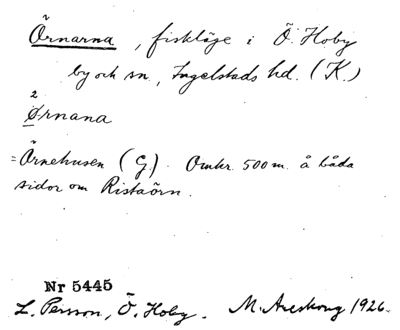 Örnarna, fiskläge i Ö. Hoby
by och sn, Ingelstads hd. (K.)
2
Ørnana
= Örnehusen (G). Omkr. 500 m. å båda
sidor om Ristaörn.
Nr 5445
L. Persson, Ö. Hoby. M. Areskoug 1926.